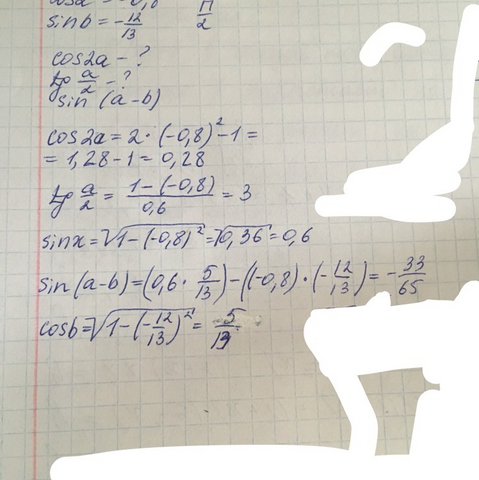 cosa = -0,8
sinb = -12/13 π/2
cos2a - ?
tg a/2 - ?
sin (a-b)
cos2a = 2·(-0,8)²-1 =
= 1,28-1 = 0,28
tg a/2 = 1-(-0,8)/0,6 = 3
sinx = √1-(-0,8)² = √0,36 = 0,6
sin(a-b) = (0,6·5/13)-((-0,8)·(-12/13) = -33/65
cosb = √1-(-12/13)² = 5/13